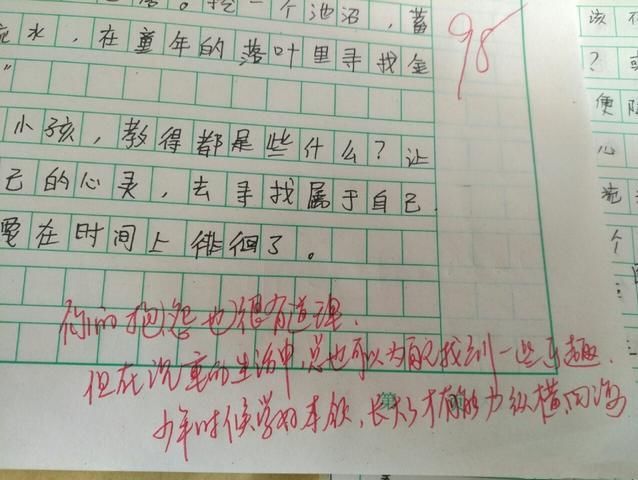 一个池沼，蓄
水，在童年的落叶里寻找金
98
”
小孩，教得都是些什么？让
己的心灵，去寻找属于自己
要在时间上徘徊了。
你的抱怨也很有道理.
但在沉重的生活中,总也可以为自己找到一些乐趣.
少年时候学好本领,长大了才有能力纵横四海
第
该
？
便
心
个